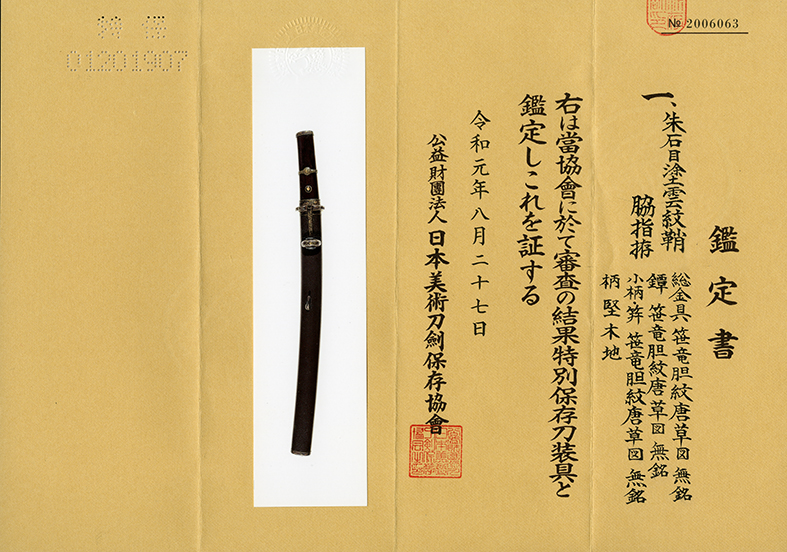 № 2006063
鑑定書
一、朱石目塗雲紋鞘
脇指拵
総金具 笹竜胆紋唐草図 無銘
鐔 笹竜胆紋唐草図 無銘
小柄・笄 笹竜胆紋唐草図 無銘
柄 堅木地
右は當協會に於て審査の結果特別保存刀装具と
鑑定しこれを証する
令和元年八月二十七日
公益財團法人 日本美術刀劍保存協會
01201907